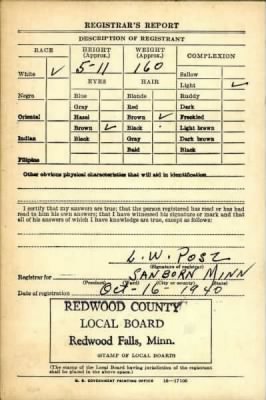 REGISTRAR'S REPORT
DESCRIPTION OF REGISTRANT
RACE HEIGHT (Approx.) WEIGHT (Approx.) COMPLEXION
White ✓ 5-11 160 Sallow
EYES HAIR Light ✓
Negro Blue Blonde Ruddy
Gray Red Dark
Oriental Hazel Brown ✓ Freckled
Brown ✓ Black Light brown
Indian Black Gray Dark brown
Bald Black
Filipino
Other obvious physical characteristics that will aid in identification
I certify that my answers are true; that the person registered has read or has had
read to him his own answers; that I have witnessed his signature or mark and that
all of his answers of which I have knowledge are true, except as follows:
L. W. Posz
(Signature of registrar)
Registrar for SANBORN MINN
(Precinct) (City or county) (State)
Date of registration Oct-16-1940
REDWOOD COUNTY
LOCAL BOARD
Redwood Falls, Minn.
(STAMP OF LOCAL BOARD)
(The stamp of the Local Board having jurisdiction of the registrant
shall be placed in the above space.)
U. S. GOVERNMENT PRINTING OFFICE 16—17105